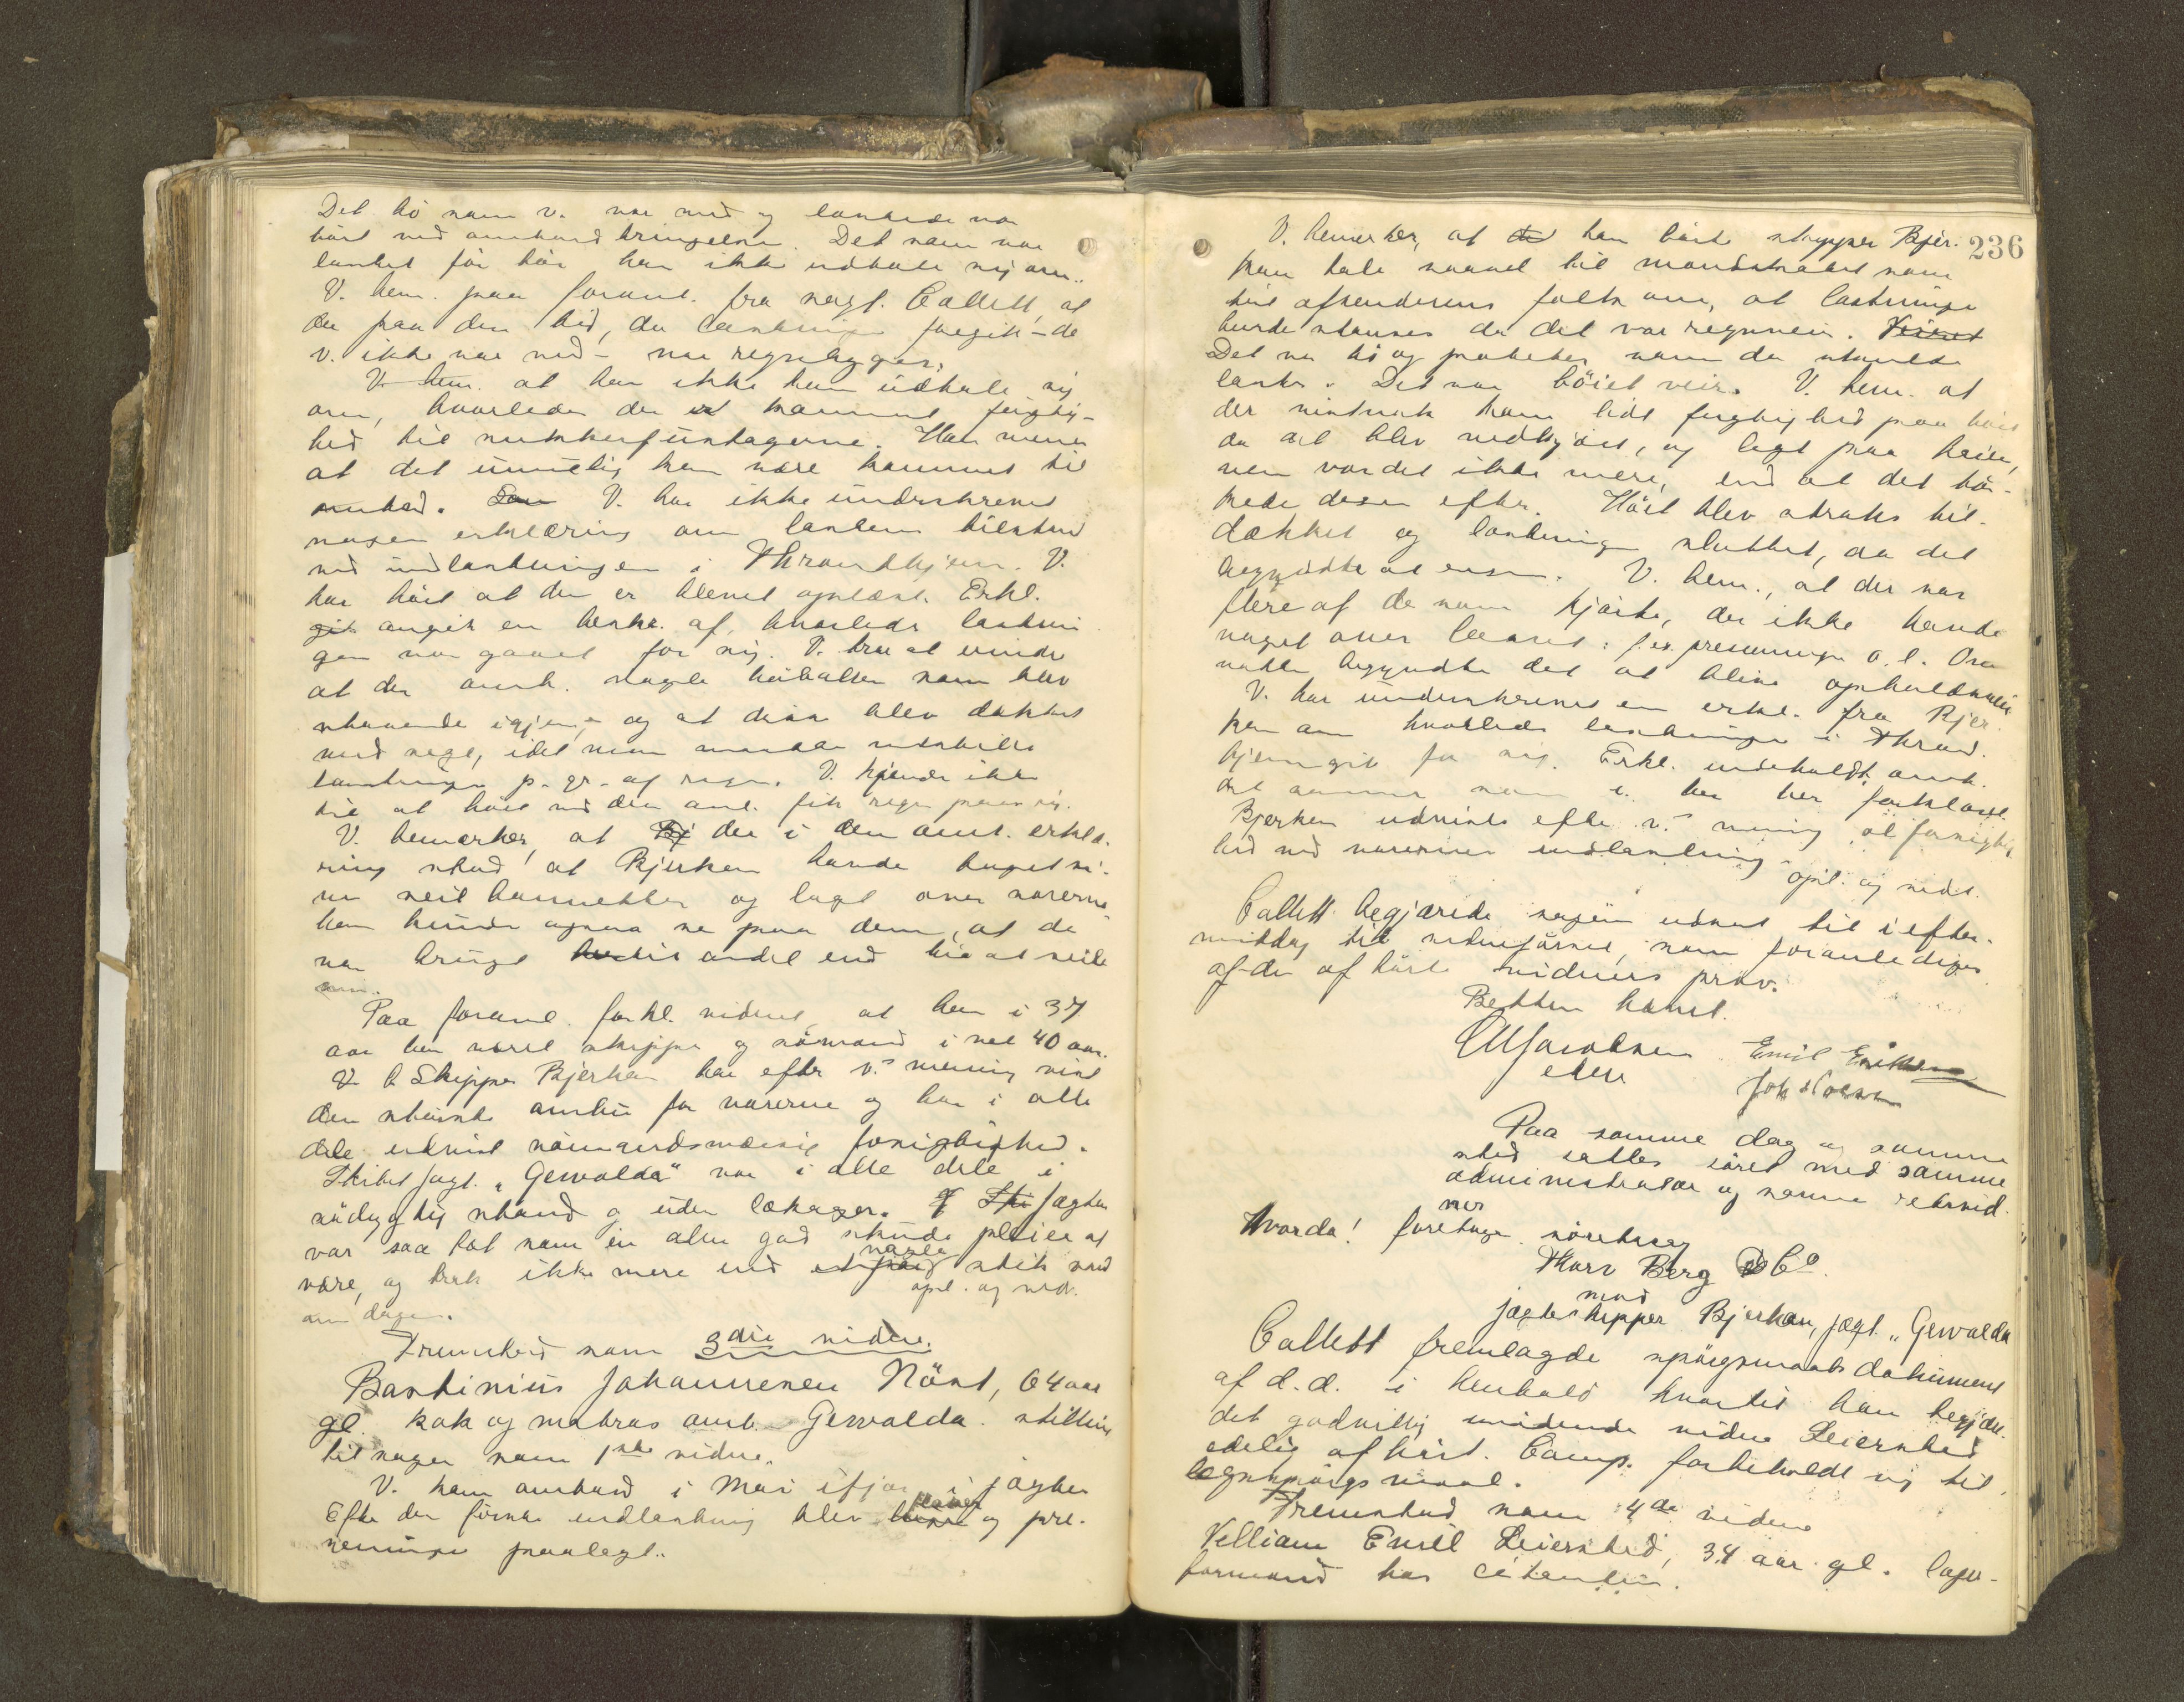 Det hö som v. var med og lastede var
tört ved ombordbringelsen. Det som var
lastet för kan han ikke udtale sig om.
V. bem. paa foranl. fra sagf. Collett, at
der paa den tid, da lastningen foregik – da
v. ikke var med – var regnbyger.
V. bem. at han ikke kan udtale sig
om, hvorledes der er kommet fugtig-
hed til sukkerfustagerne. Han mener
at det umulig kan være kommet til
ombord. V. har ikke underskrevet
nogen erklæring om lastens tilstand
ved indlastningen i Throndhjem. V.
har hört at den er blevet oplæst. Erkl.
angik en beskr. af, hvorledes lastnin
gen var gaaet for sig. V. tror at vide
at der omh. nogle höballer som blev
staaende igjen, og at disse blev dækket
med sege, idet man maatte indstille
lastningen p. gr. af regn. V. kjender ikke
til at höet ved den anl. fik regn paa sig.
V. bemærker, at der i den omt. erklæ-
ring stod at Bjerkan havde taget si-
ne seil og lagt over varerne
han kunde ogsaa se paa dem, at de
var brugt til andet end til at seile
om.
Paa foranl. forkl. vidnet at han i 37
aar har været skipper og sömand i vel 40 aar.
Skipper Bjerkan har efter v.s mening vist
den störste omhu for varerne og har i alle
dele udvist sömandsmæssig forsigtighed.
Skibet jagt. „Gewalda" var i alle dele i
södygtig stand og uden lækager. Jagten
var saa tæt som en alm god skude pleier at
være, og trak ikke mere end nogle stik vand
om dagen. opl. og vedt.
Fremstod som 3die vidne.
Bastinius Johannesen Näst, 64 aar
gl. kok og matros omb. Gewalda. stilling
til sagen som 1ste vidne.
V. kom ombord i Mai ifjor i jagten
Efter den förste indlastning blev og pre-
senninger paalagt.
236
V. bemerker, at han hörte skipper Bjer-
kan tale saavel til mandskabet som
til afsenderens folk om, at lastningen
burde stanses da det var regnveir. Veiret
Det var hö og poteter som da skulde
lastes. Det var böiet veir. V. bem. at
der vistnok kom lidt fugtighed paa höet
da det blev nedkjört, og lagt paa kaien,
men var det ikke mere, end at det tör-
kede dagen efter. Höet blev straks til-
dækket og lastningen sluttet, da det
begyndte at regne. V. bem., at der var
flere af de som kjörte, der ikke havde
noget over læsset: f. ex. presenninger o. l. Om
natten begyndte det at blive opholdsveir
V. har underskrevet en erkl. fra Bjer-
kan om hvorledes lastningen i Thrond-
hjem gik for sig. Erkl. indeholdt omt.
det samme som v. her har forklaret.
Bjerkan udviste efter v.s mening al forsigtig-
hed ved varernes indlastning. opl. og vedt.
Collett begjærede sagen udsat til i efter-
middag til vidneförsel, som foranlediges
af de afhörte vidners prov.
Retten hævet.
Emil Eriksen
Paa samme dag og samme
sted sattes söret med samme
administrator og samme retsvid-
ner
Hvorda! foretoges söretssag
Thorv Berg & Co.
mod
jagtskipper Bjerkan, jagt. „Gewalda
Collett fremlagde spörgsmaalsdokument
af d. d. i henhold hvortil han begjær.
det godvillig mödende vidne Leierstad
edelig afhört. Camp. forbeholdt sig til-
lægsspörgsmaal.
Fremstod som 4de vidne
Villiam Emil Leierstad, 34 aar gl. lager-
formand hos citanten.